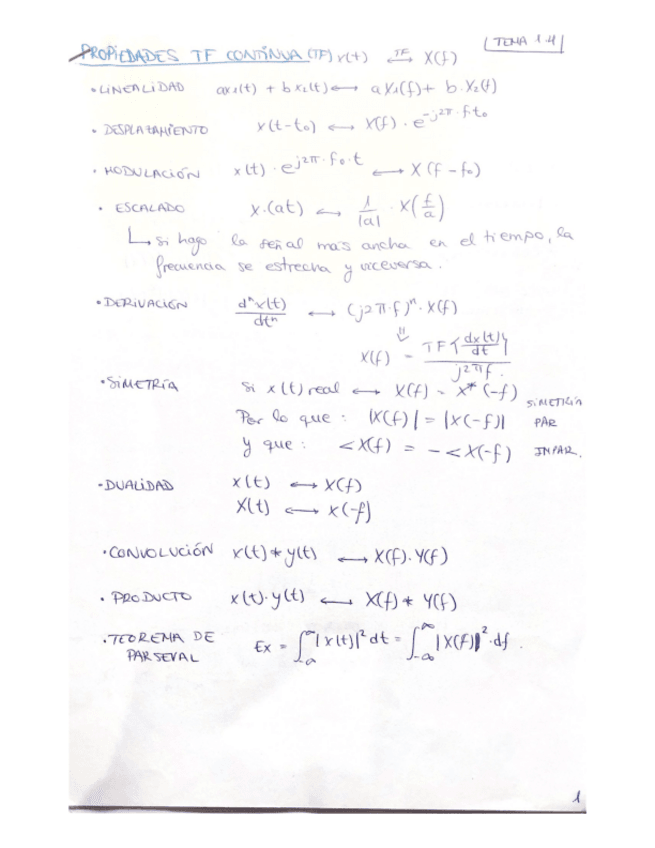 TEMA 1.4
PROPIEDADES TF CONTÍNUA (TF) x(t) ⟷ᵀᶠ X(f)
• LINEALIDAD ax₁(t) + bx₂(t) ⟷ a X₁(f) + b·X₂(f)
• DESPLAZAMIENTO x(t-t₀) ⟷ X(f) · e^(-j2π·f·t₀)
• MODULACIÓN x(t) · e^(j2π·f₀·t) ⟷ X(f-f₀)
• ESCALADO x·(at) ⟷ 1/|a| · X(f/a)
↳ si hago la señal más ancha en el tiempo, la
frecuencia se estrecha y viceversa.
• DERIVACIÓN dⁿx(t)/dtⁿ ⟷ (j2π·f)ⁿ · X(f)
⇓
X(f) = TF{dx(t)/dt}/j2πf.
• SIMETRÍA Si x(t) real ⟷ X(f) = X*(-f)
SIMETRÍA
Por lo que: |X(f)| = |X(-f)| PAR
y que: <X(f) = -<X(-f) IMPAR.
• DUALIDAD x(t) ⟷ X(f)
X(t) ⟷ x(-f)
• CONVOLUCIÓN x(t)*y(t) ⟷ X(f)·Y(f)
• PRODUCTO x(t)·y(t) ⟷ X(f)*Y(f)
• TEOREMA DE PARSEVAL Ex = ∫_{-∞}^{∞} |x(t)|² dt = ∫_{-∞}^{∞} |X(f)|²·df.
1